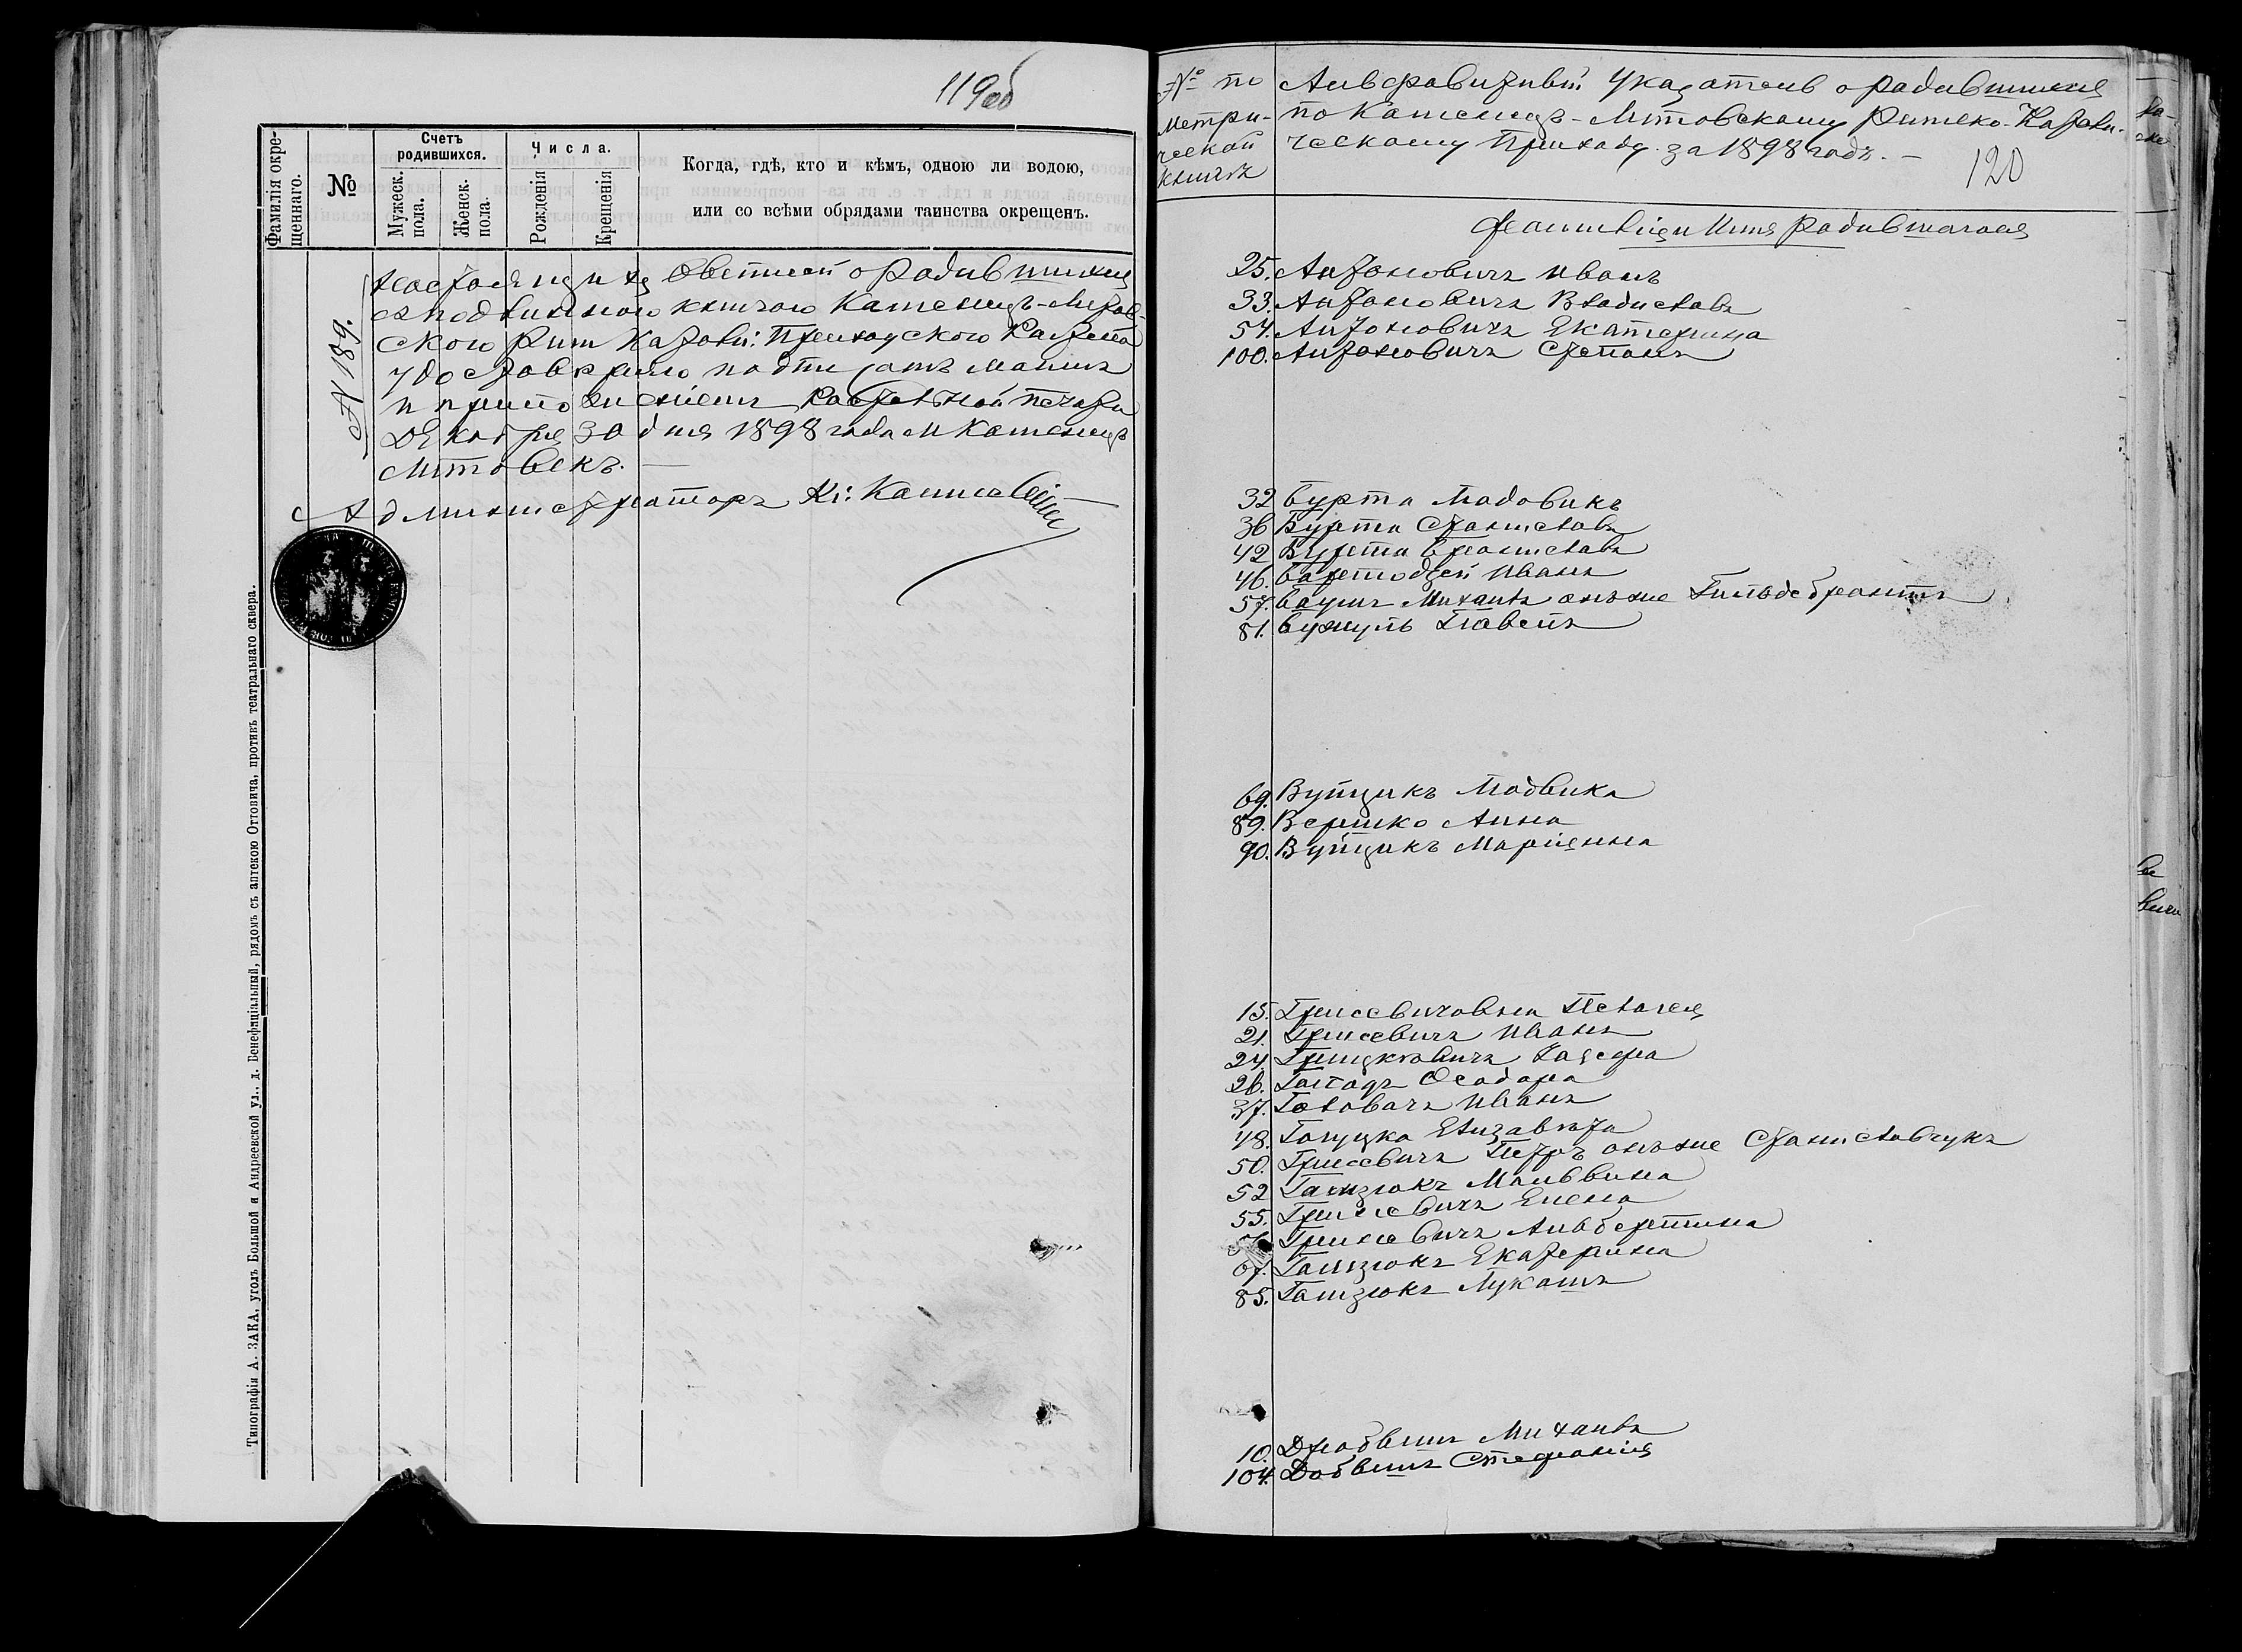 119об
Фамилія окре-
щеннаго.
№
Счетъ
родившихся.
Мужеск.
пола.
Женск.
пола.
Числа.
Рожденія
Крещенія
Когда, гдѣ, кто и кѣмъ, одною ли водою,
или со всѣми обрядами таинства окрещенъ.
№ 189.
о родившихся
съ подлинною книгою Каменецъ-Литов-
ского Рим Катол: Приходского Костела
удостовѣряю подписомъ моимъ
и приложеніемъ Костельной печати
Декабря 30 дня 1898 года М Каменецъ
Литовскъ. —
Администраторъ Кс:
Типографія А. ЗАКА, уголъ Большой и Андреевской ул., д. Бенефиціальный, рядомъ съ аптекою Оттовича, противъ театральнаго сквера.
№ по
метри-
ческой
книгѣ
Алфавитный Указатель о родившихся
по Каменецъ-Литовскому Римско-Католи-
ческому Приходу за 1898 годъ. —
120
Фамилія и Имя родившагося
25. Антоновичъ Иванъ
33. Антоновичъ Владиславъ
54. Антоновичъ Екатерина
100. Антоновичъ Степанъ
32 Бурта Людовикъ
36 Бурта Станиславъ
42 Бурта Брониславъ
46. Бартодзей Иванъ
57. Баумъ Михаилъ онъ же Гильдебрантъ
81. Бужуль Павелъ
69. Вуйцикъ Людвика
89. Вершко Анна
90. Вуйцикъ Маріянна
15. Гриневичовна Пелагея
21. Гриневичъ Иванъ
24. Грицкевичъ
26. Ѳеодора
37. Головачъ Иванъ
48. Голуцка Елизавета
50. Гриневичъ Петръ онъ же Станиславчукъ
52 Гамзюкъ Мальвина
55. Гриневичъ Елена
Гриневичъ Альбертина
67. Гамзюкъ Екатерина
85. Гамзюкъ Лукашъ
10. Михаилъ
104. Стефанія